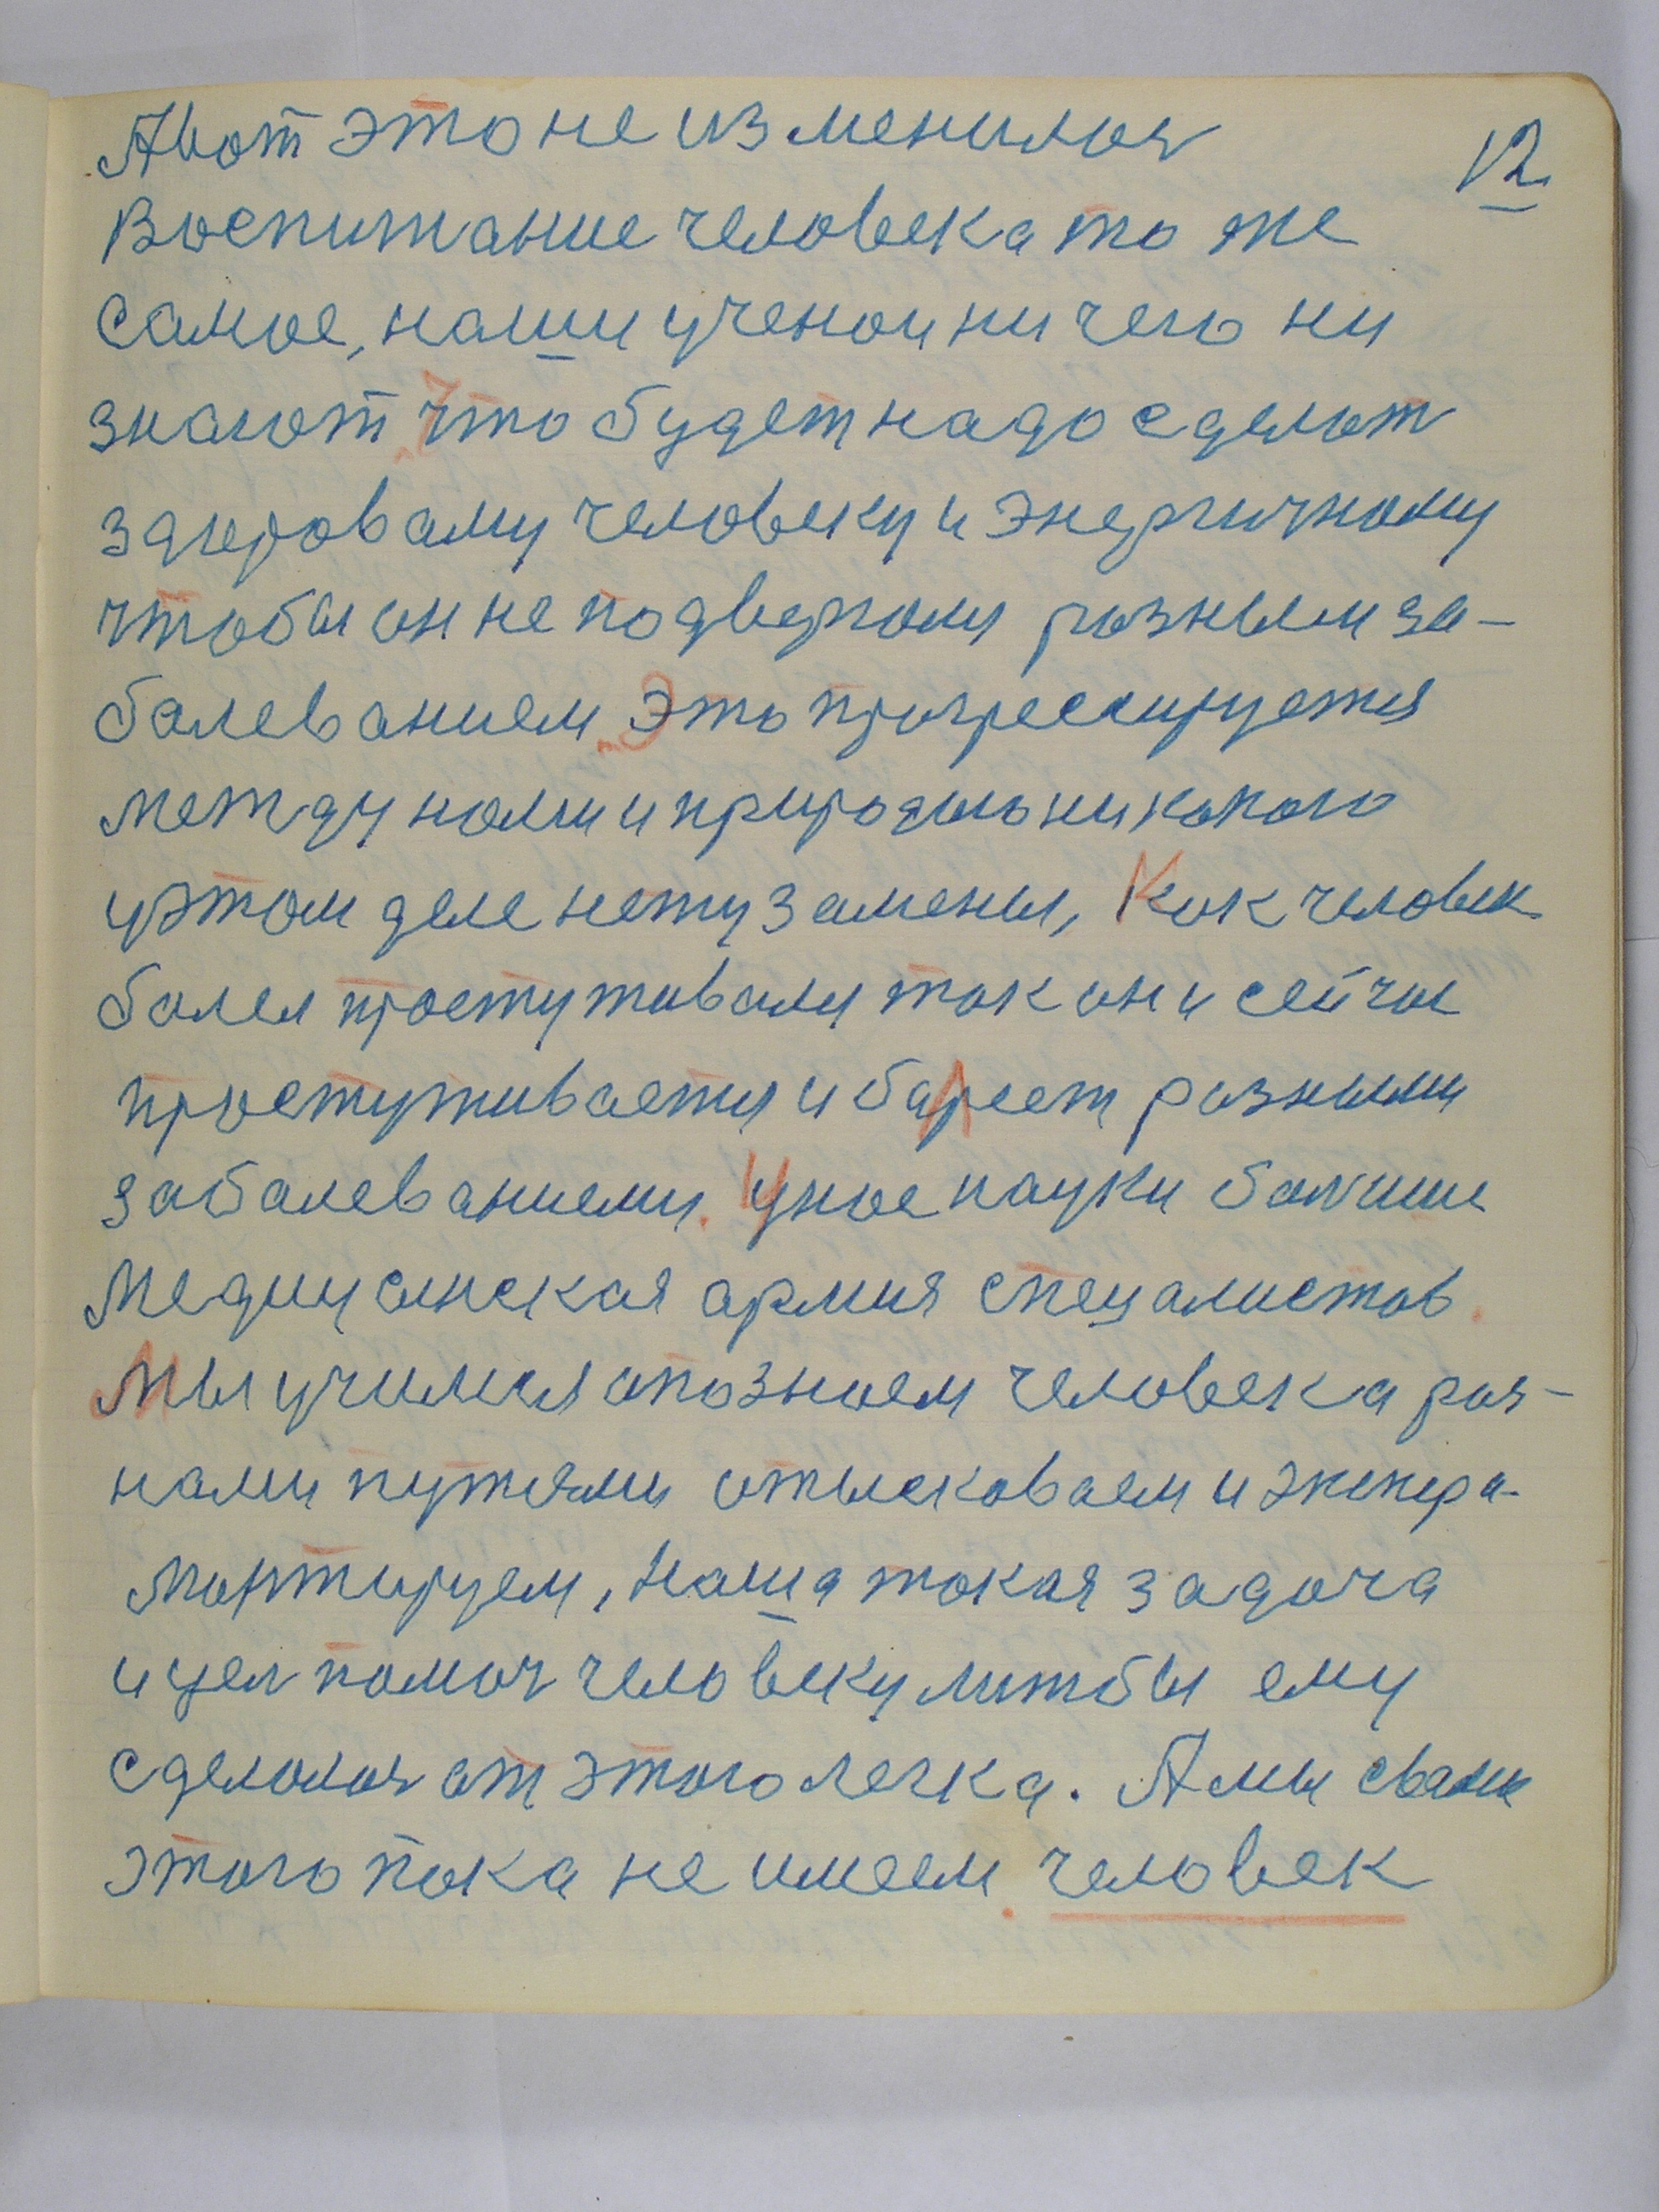 12
Авот это не изменилось
Воспитание человека то же
самое, наши ученои ни чего ни
знают. Что будет надо сделат
здороваму человеку и энергичному
чтобы он не подвергался разным за-
балеванием. Это прогрессируется
между нами и природою никакого
у этом деле нету замены, Как человек
балел простужывался так он и сейчас
простужывается и балеет разными
забалеваниеми. У нас науки балшие
Медицинская армия спецалистов.
Мы учимся опознаем человека раз-
нами путями отыскаваем и экспера-
ментируем, Наша такая задача
и цел помоч человеку лижбы ему
сделалось от этого легка. А мы с вами
этого пока не имеем. человек